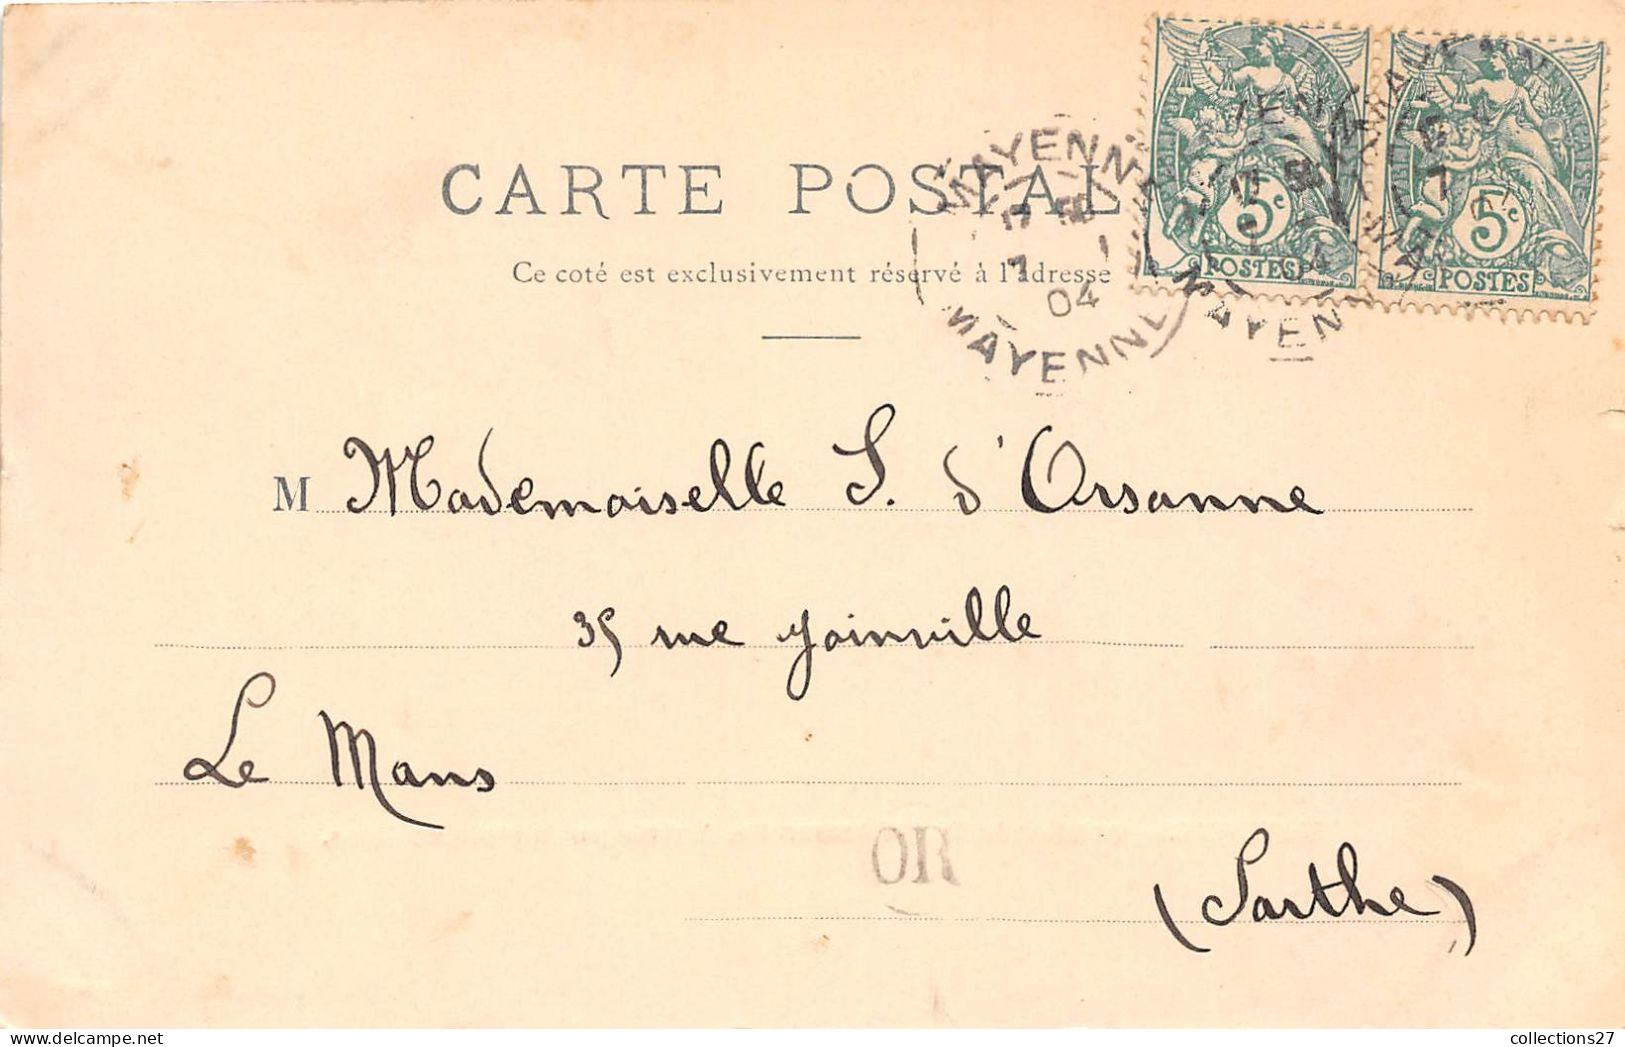 CARTE POSTALE
Ce coté est exclusivement réservé à l'adresse
MAYENNE
04
MAYENNE
5c
POSTES
5c
POSTES
M Mademoiselle S. d'Orsanne
35 rue Joinville
Le Mans
OR
(Sarthe)
collections27